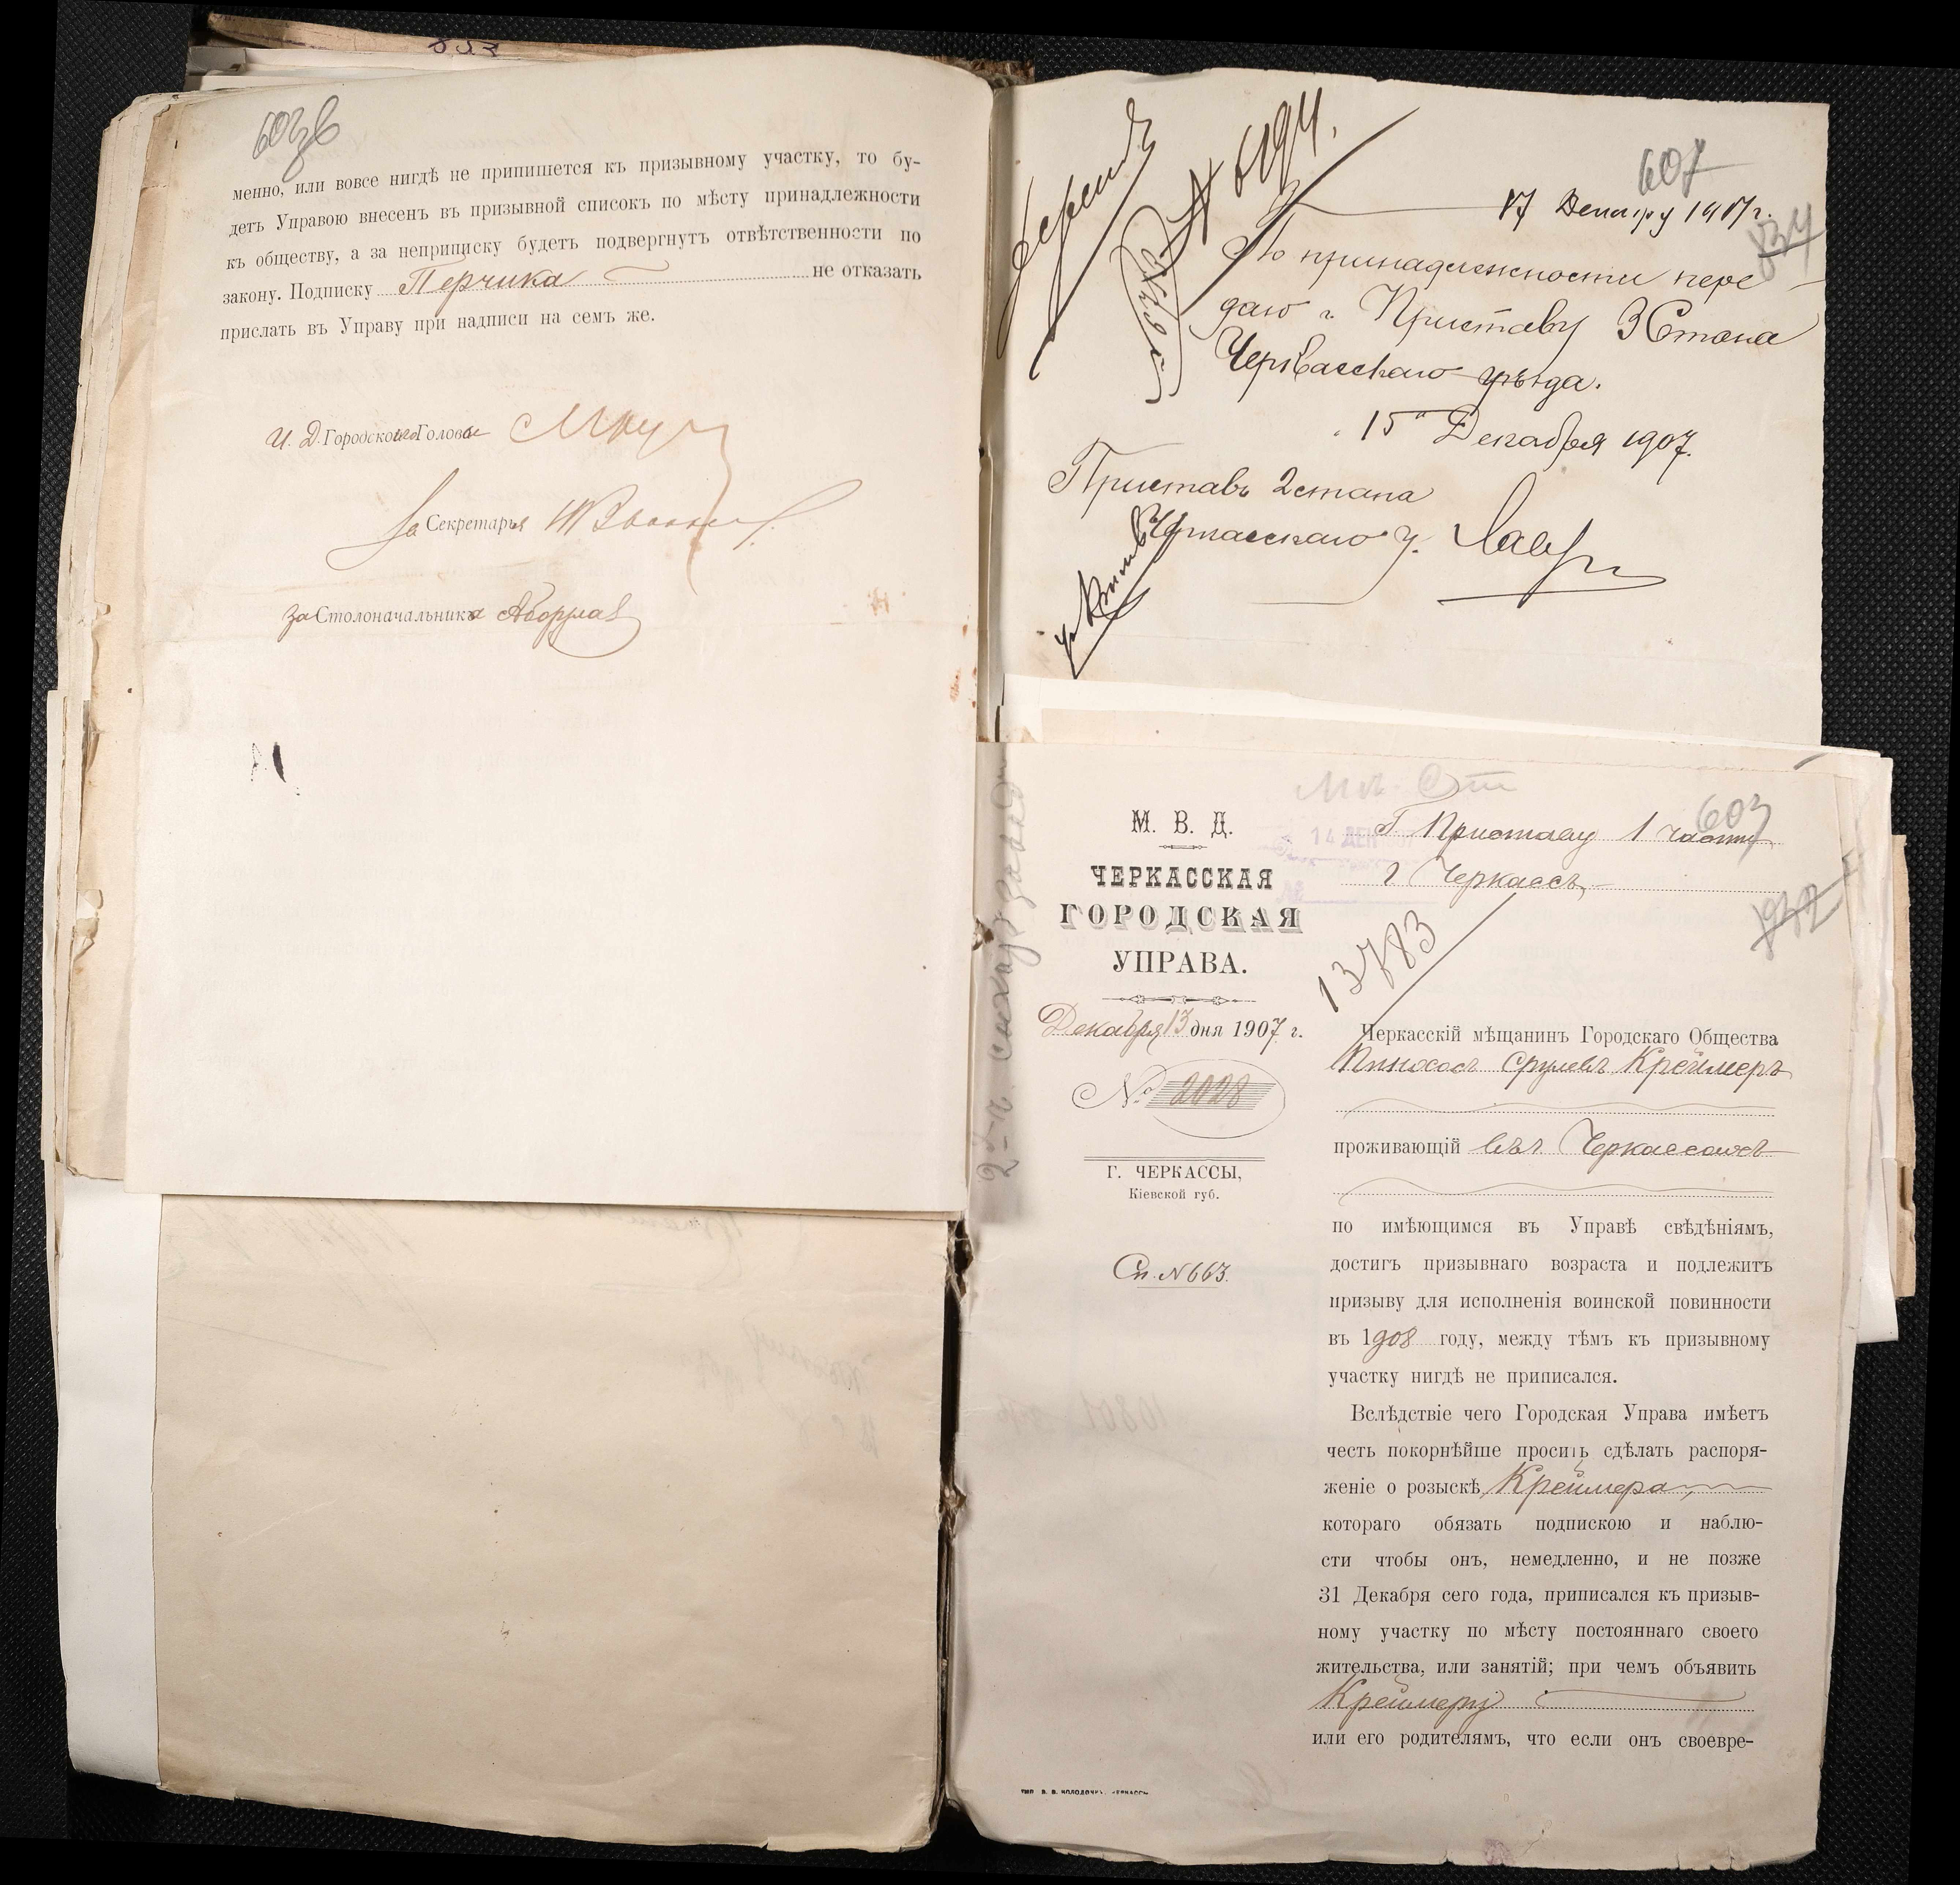 603б
менно, или вовсе нигдѣ не припишется къ призывному участку, то бу-
детъ Управою внесенъ въ призывной списокъ по мѣсту принадлежности
къ обществу, а за неприписку будетъ подвергнутъ отвѣтственности по
закону. Подписку Перчика не отказать
прислать въ Управу при надписи на семъ же.
И. Д. Городского Головы
За Секретаря
за Столоначальника
607
834
17 1907 г.
По принадлежности пере
даю г. Приставу 3 Стана
Черкасскаго уѣзда.
15 Декабря 1907.
Приставъ 2 стана
Черкасскаго у.
603
832
М. В. Д.
ЧЕРКАССКАЯ
ГОРОДСКАЯ
УПРАВА.
Декабря 13 дня 1907 г.
№ 2028
Г. ЧЕРКАССЫ,
Кіевской губ.
Сп. № 663.
14 ДЕК
Г Приставу 1 части
г Черкассъ
13783
Черкасскій мѣщанинъ Городскаго Общества
Пинхосъ Срулевъ Креймеръ
проживающій въ г. Черкассахъ
по имѣющимся въ Управѣ свѣдѣніямъ,
достигъ призывнаго возраста и подлежитъ
призыву для исполненія воинской повинности
въ 1908 году, между тѣмъ къ призывному
участку нигдѣ не приписался.
Вслѣдствіе чего Городская Управа имѣетъ
честь покорнѣйше просить сдѣлать распоря-
женіе о розыскѣ Креймера,
котораго обязать подпискою и наблю-
сти чтобы онъ, немедленно, и не позже
31 Декабря сего года, приписался къ призыв-
ному участку по мѣсту постояннаго своего
жительства, или занятій; при чемъ объявить
Креймеру
или его родителямъ, что если онъ своевре-